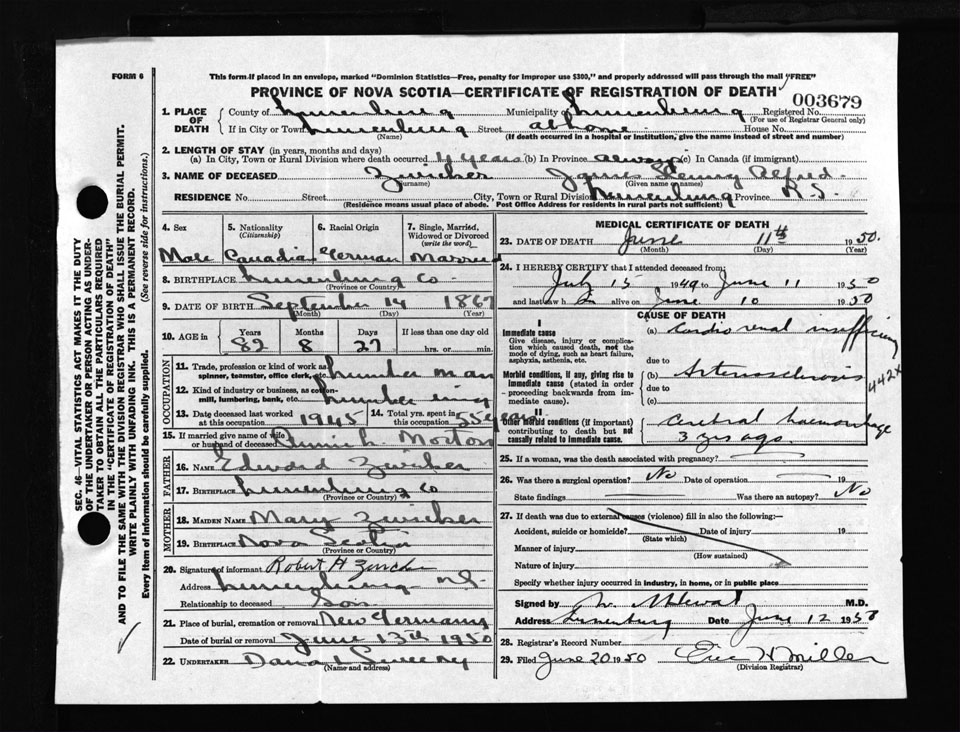 FORM 6
This form if placed in an envelope, marked "Dominion Statistics—Free, penalty for improper use $300," and properly addressed will pass through the mail "FREE"
PROVINCE OF NOVA SCOTIA—CERTIFICATE OF REGISTRATION OF DEATH
003679
1. PLACE OF DEATH
County of Lunenburg Municipality of Lunenburg Registered No.
(For use of Registrar General only)
If in City or Town Lunenburg Street at home House No.
(Name) (If death occurred in a hospital or Institution, give the name instead of street and number)
2. LENGTH OF STAY (in years, months and days)
(a) In City, Town or Rural Division where death occurred 4 years (b) In Province always (c) In Canada (if immigrant)
3. NAME OF DECEASED Zwicker James Henry Alfred
(Surname) (Given name or names)
RESIDENCE No. Street City, Town or Rural Division Lunenburg Province N.S.
(Residence means usual place of abode. Post Office Address for residents in rural parts not sufficient)
4. Sex Male
5. Nationality (Citizenship) Canadian
6. Racial Origin German
7. Single, Married, Widowed or Divorced (write the word) Married
8. BIRTHPLACE Lunenburg Co
(Province or Country)
9. DATE OF BIRTH September 14 1867
(Month) (Day) (Year)
10. AGE in Years Months Days If less than one day old
82 8 27 hrs. or min.
OCCUPATION
11. Trade, profession or kind of work as spinner, teamster, office clerk, etc. Lumber man
12. Kind of industry or business, as cotton-mill, lumbering, bank, etc. Lumbering
13. Date deceased last worked at this occupation 1945 14. Total yrs. spent in 55 years
15. If married give name of wife or husband of deceased Morton
FATHER
16. NAME Edward Zwicker
17. Birthplace Lunenburg Co
(Province or Country)
MOTHER
18. MAIDEN NAME Mary Zwicker
19. BIRTHPLACE Nova Scotia
(Province or Country)
20. Signature of informant Robert H Zwicker
Address Lunenburg N.S.
Relationship to deceased Son
21. Place of burial, cremation or removal New Germany
Date of burial or removal June 13th 1950
22. UNDERTAKER Sweeny
(Name and address)
MEDICAL CERTIFICATE OF DEATH
23. DATE OF DEATH June 11th 1950.
(Month) (Day) (Year)
24. I HEREBY CERTIFY that I attended deceased from:
July 15 1949 to June 11 1950
and last saw h alive on June 10 1950
CAUSE OF DEATH
I
Immediate cause
Give disease, injury or complication which caused death, not the mode of dying, such as heart failure, asphyxia, asthenia, etc.
(a) Cardio renal insufficiency
due to
Morbid conditions, if any, giving rise to immediate cause (stated in order proceeding backwards from immediate cause).
(b) Arteriosclerosis
due to
(c)
442X
II
Other morbid conditions (if important) contributing to death but not causally related to immediate cause.
Cerebral haemorrhage
3 yrs ago
25. If a woman, was the death associated with pregnancy?
26. Was there a surgical operation? No Date of operation 19
State findings Was there an autopsy? No
27. If death was due to external causes (violence) fill in also the following:—
Accident, suicide or homicide? Date of injury 19
(State which)
Manner of injury
(How sustained)
Nature of injury
Specify whether injury occurred in industry, in home, or in public place
Signed by M.D.
Address Lunenburg Date June 12 1950
28. Registrar's Record Number
29. Filed June 20 1950 Eric H Miller
(Division Registrar)
SEC. 46—VITAL STATISTICS ACT MAKES IT THE DUTY
OF THE UNDERTAKER OR PERSON ACTING AS UNDERTAKER TO OBTAIN ALL THE PARTICULARS REQUIRED
IN THE "CERTIFICATE OF REGISTRATION OF DEATH"
AND TO FILE THE SAME WITH THE DIVISION REGISTRAR WHO SHALL ISSUE THE BURIAL PERMIT.
WRITE PLAINLY WITH UNFADING INK. THIS IS A PERMANENT RECORD.
Every item of information should be carefully supplied. (See reverse side for instructions.)